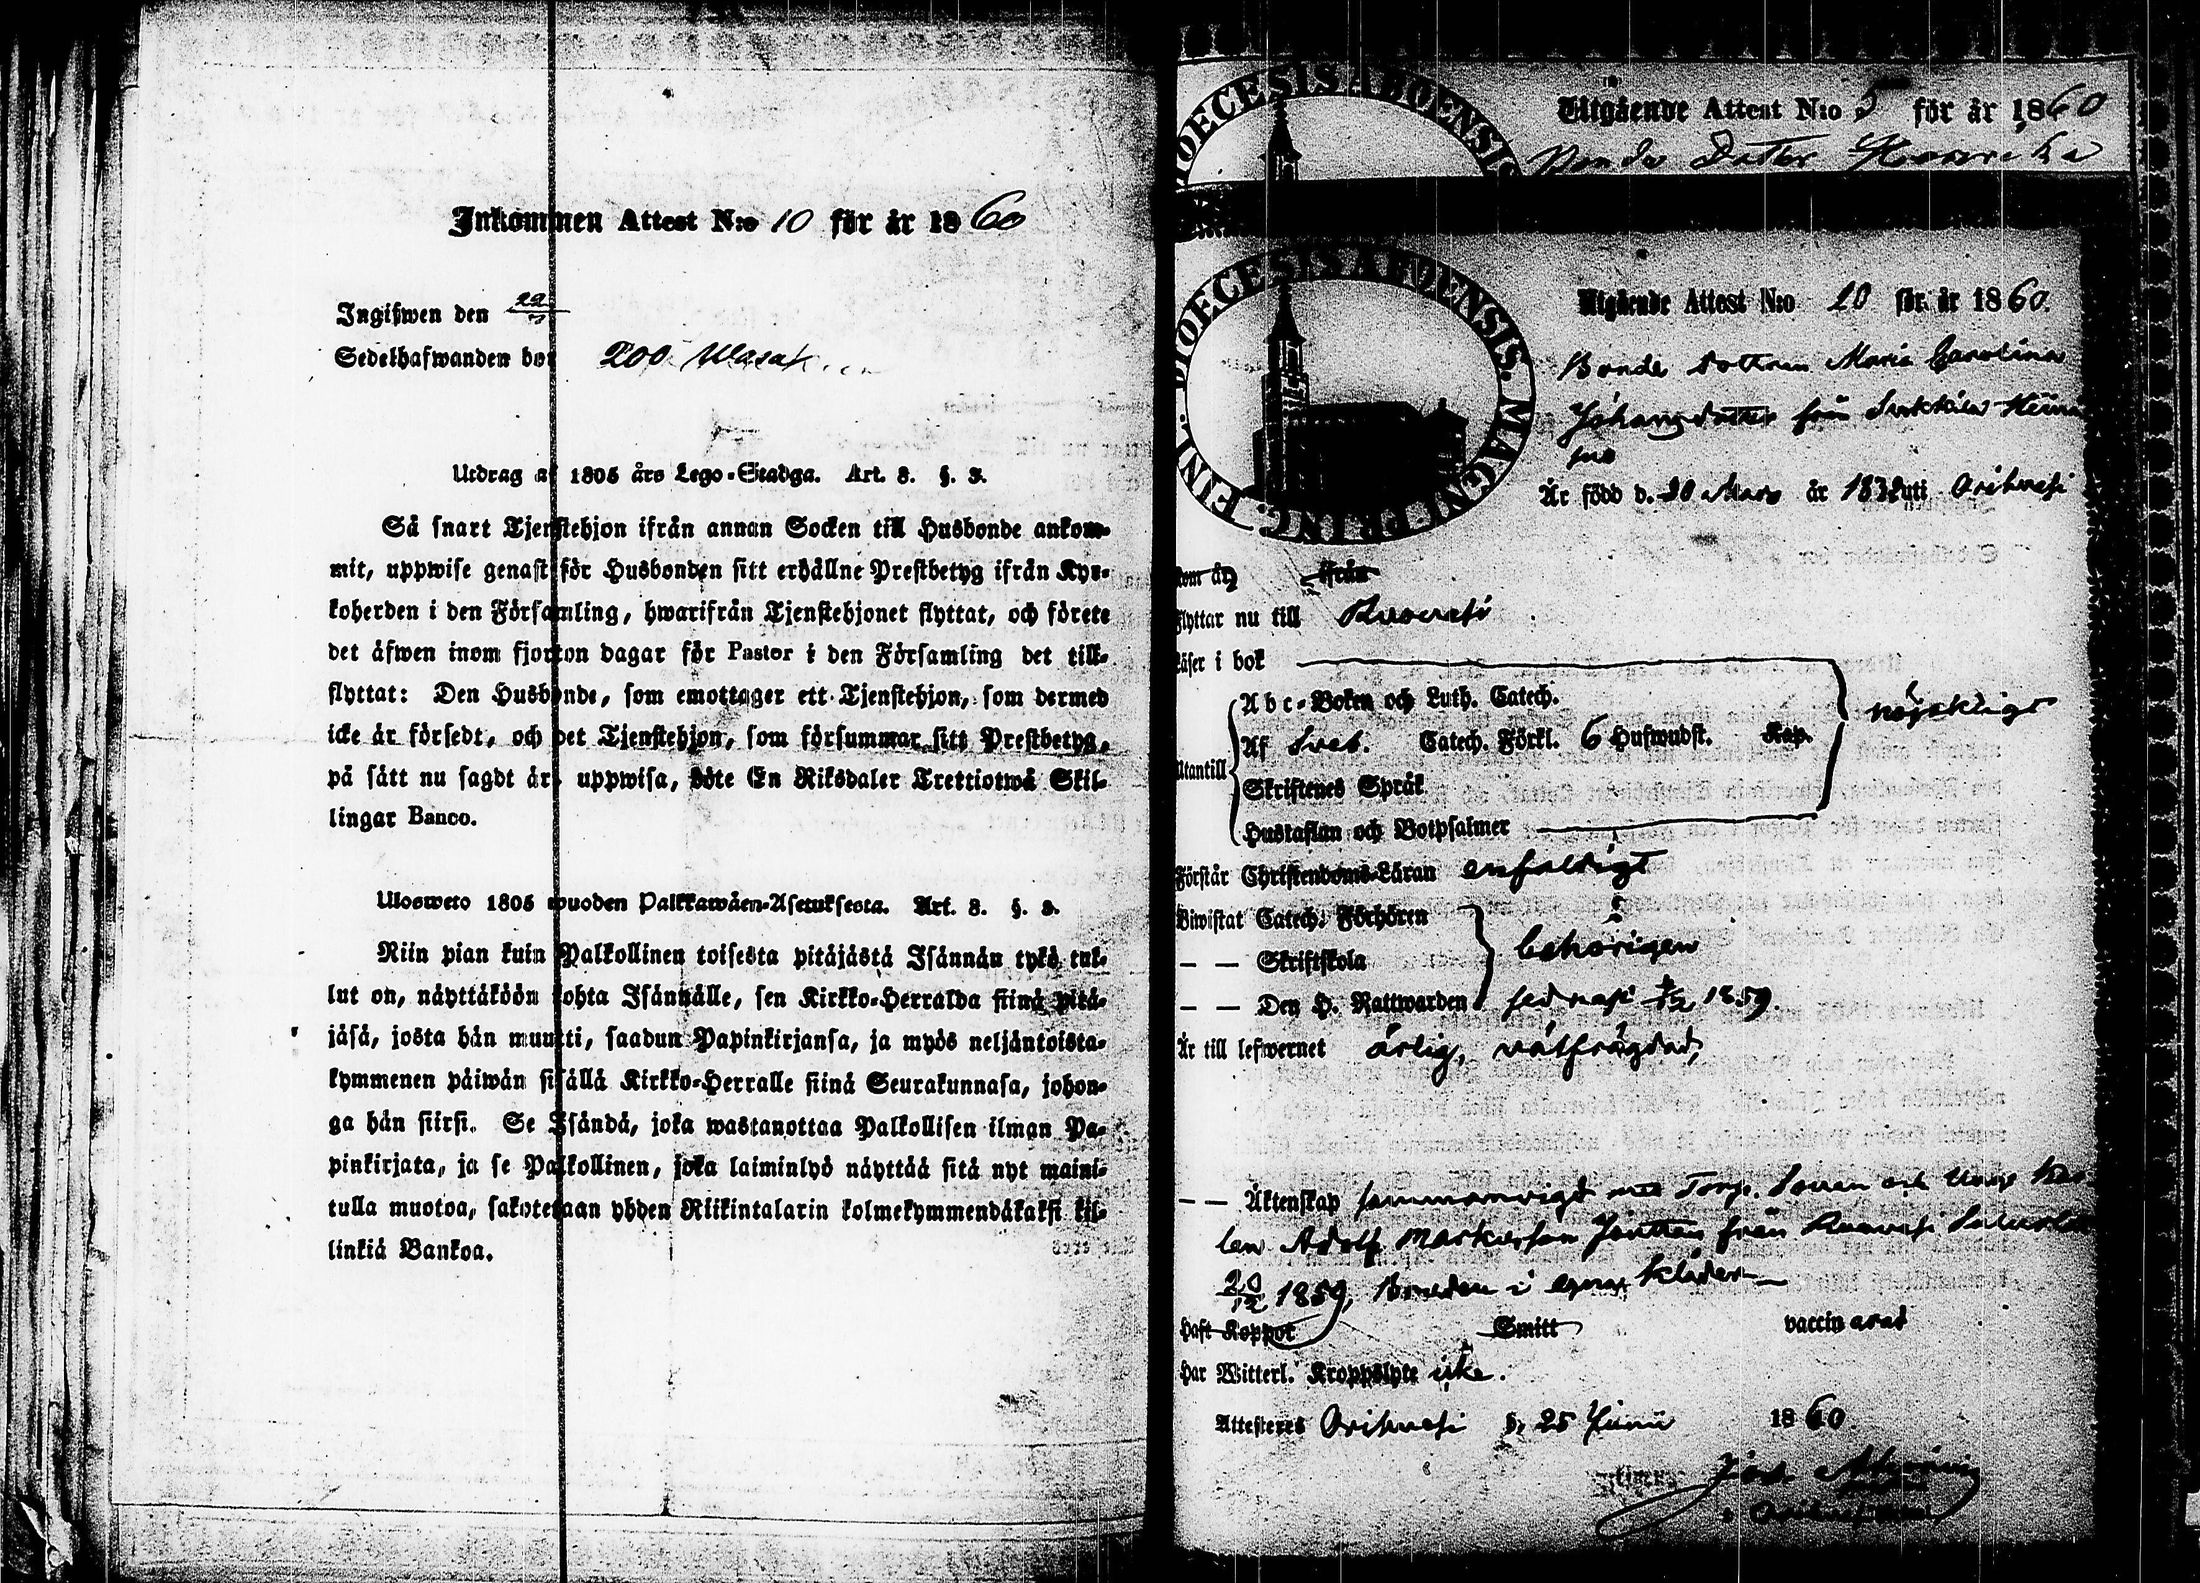 Inkommen Attest N:o 10 för år 1860
Ingifwen den 22
Sedelhafwanden bor 200
Utdrag af 1805 års Lego-Stadga. Art. 8. §. 3.
Så snart Tjenstehjon ifrån annan Socken till Husbonde ankom-
mit, uppwise genast för Husbonden sitt erhållne Prestbetyg ifrån Kyr-
koherden i den Församling, hwarifrån Tjenstehjonet flyttat, och förete
det äfwen inom fjorton dagar för Pastor i den Församling det till-
flyttat: Den Husbonde, som emottager ett Tjenstehjon, som dermed
icke är försedt, och det Tjenstehjon, som försummar sitt Prestbetyg,
på sätt nu sagdt är, uppwisa, böte En Riksdaler Trettiotwå Skil-
lingar Banco.
Ulosweto 1805 wuoden Palkkawäen-Asetuksesta. Art. 8. §. 3.
Niin pian kuin Palkollinen toisesta pitäjästä Isännän tykö tul-
lut on, näyttäköön kohta Isännälle, sen Kirkko-Herralda siinä pitä-
jäsä, josta hän muutti, saadun Papinkirjansa, ja myös neljäntoista-
kymmenen päiwän sisällä Kirkko-Herralle siinä Seurakunnasa, johon-
ga hän siirsi. Se Isändä, joka wastanottaa Palkollisen ilman Pa-
pinkirjata, ja se Palkollinen, joka laiminlyö näyttää sitä nyt maini-
tulla muotoa, sakotetaan yhden Riikintalarin kolmekymmendäkaksi kil-
linkiä Bankoa.
DIOECESIS ABOENSIS
Utgående Attest N:o 5 för år 1860
Bonde Dotter
DIOECESIS ABOENSIS. MAGNI PRINC. FINL.
Utgående Attest N:o 10 för år 1860.
Bonde dottren Maria Carolina
Johansdotter från
Är född d. 20 Mars år 1838 uti Orihvesi
kom år ifrån
flyttar nu till Ruovesi
Läser i bok
Abc-Boken och Luth. Catech.
Af Sveb. Catech. Förkl. 6 Hufwudst. Kap. nöjaktigt
Utantill
Skriftenes Språk
Hustaflan och Botpsalmer
Förstår Christendoms-Läran enfaldigt
Biwistat Catech. Förhören
— — Skriftskola behörigen
— — Den H. Nattwarden sednast 1859.
Är till lefwernet ärlig, välfrägdad,
— — Äktenskap sammanvigd med Torp. Sonen och Unge
len Adolf Markusson från Ruovesi
1859, Bruden i egna kläder
haft Koppor Smitt vaccinerad
har Witterl. Kroppslyte icke.
Attesteres Orihvesi d. 25 Junii 1860